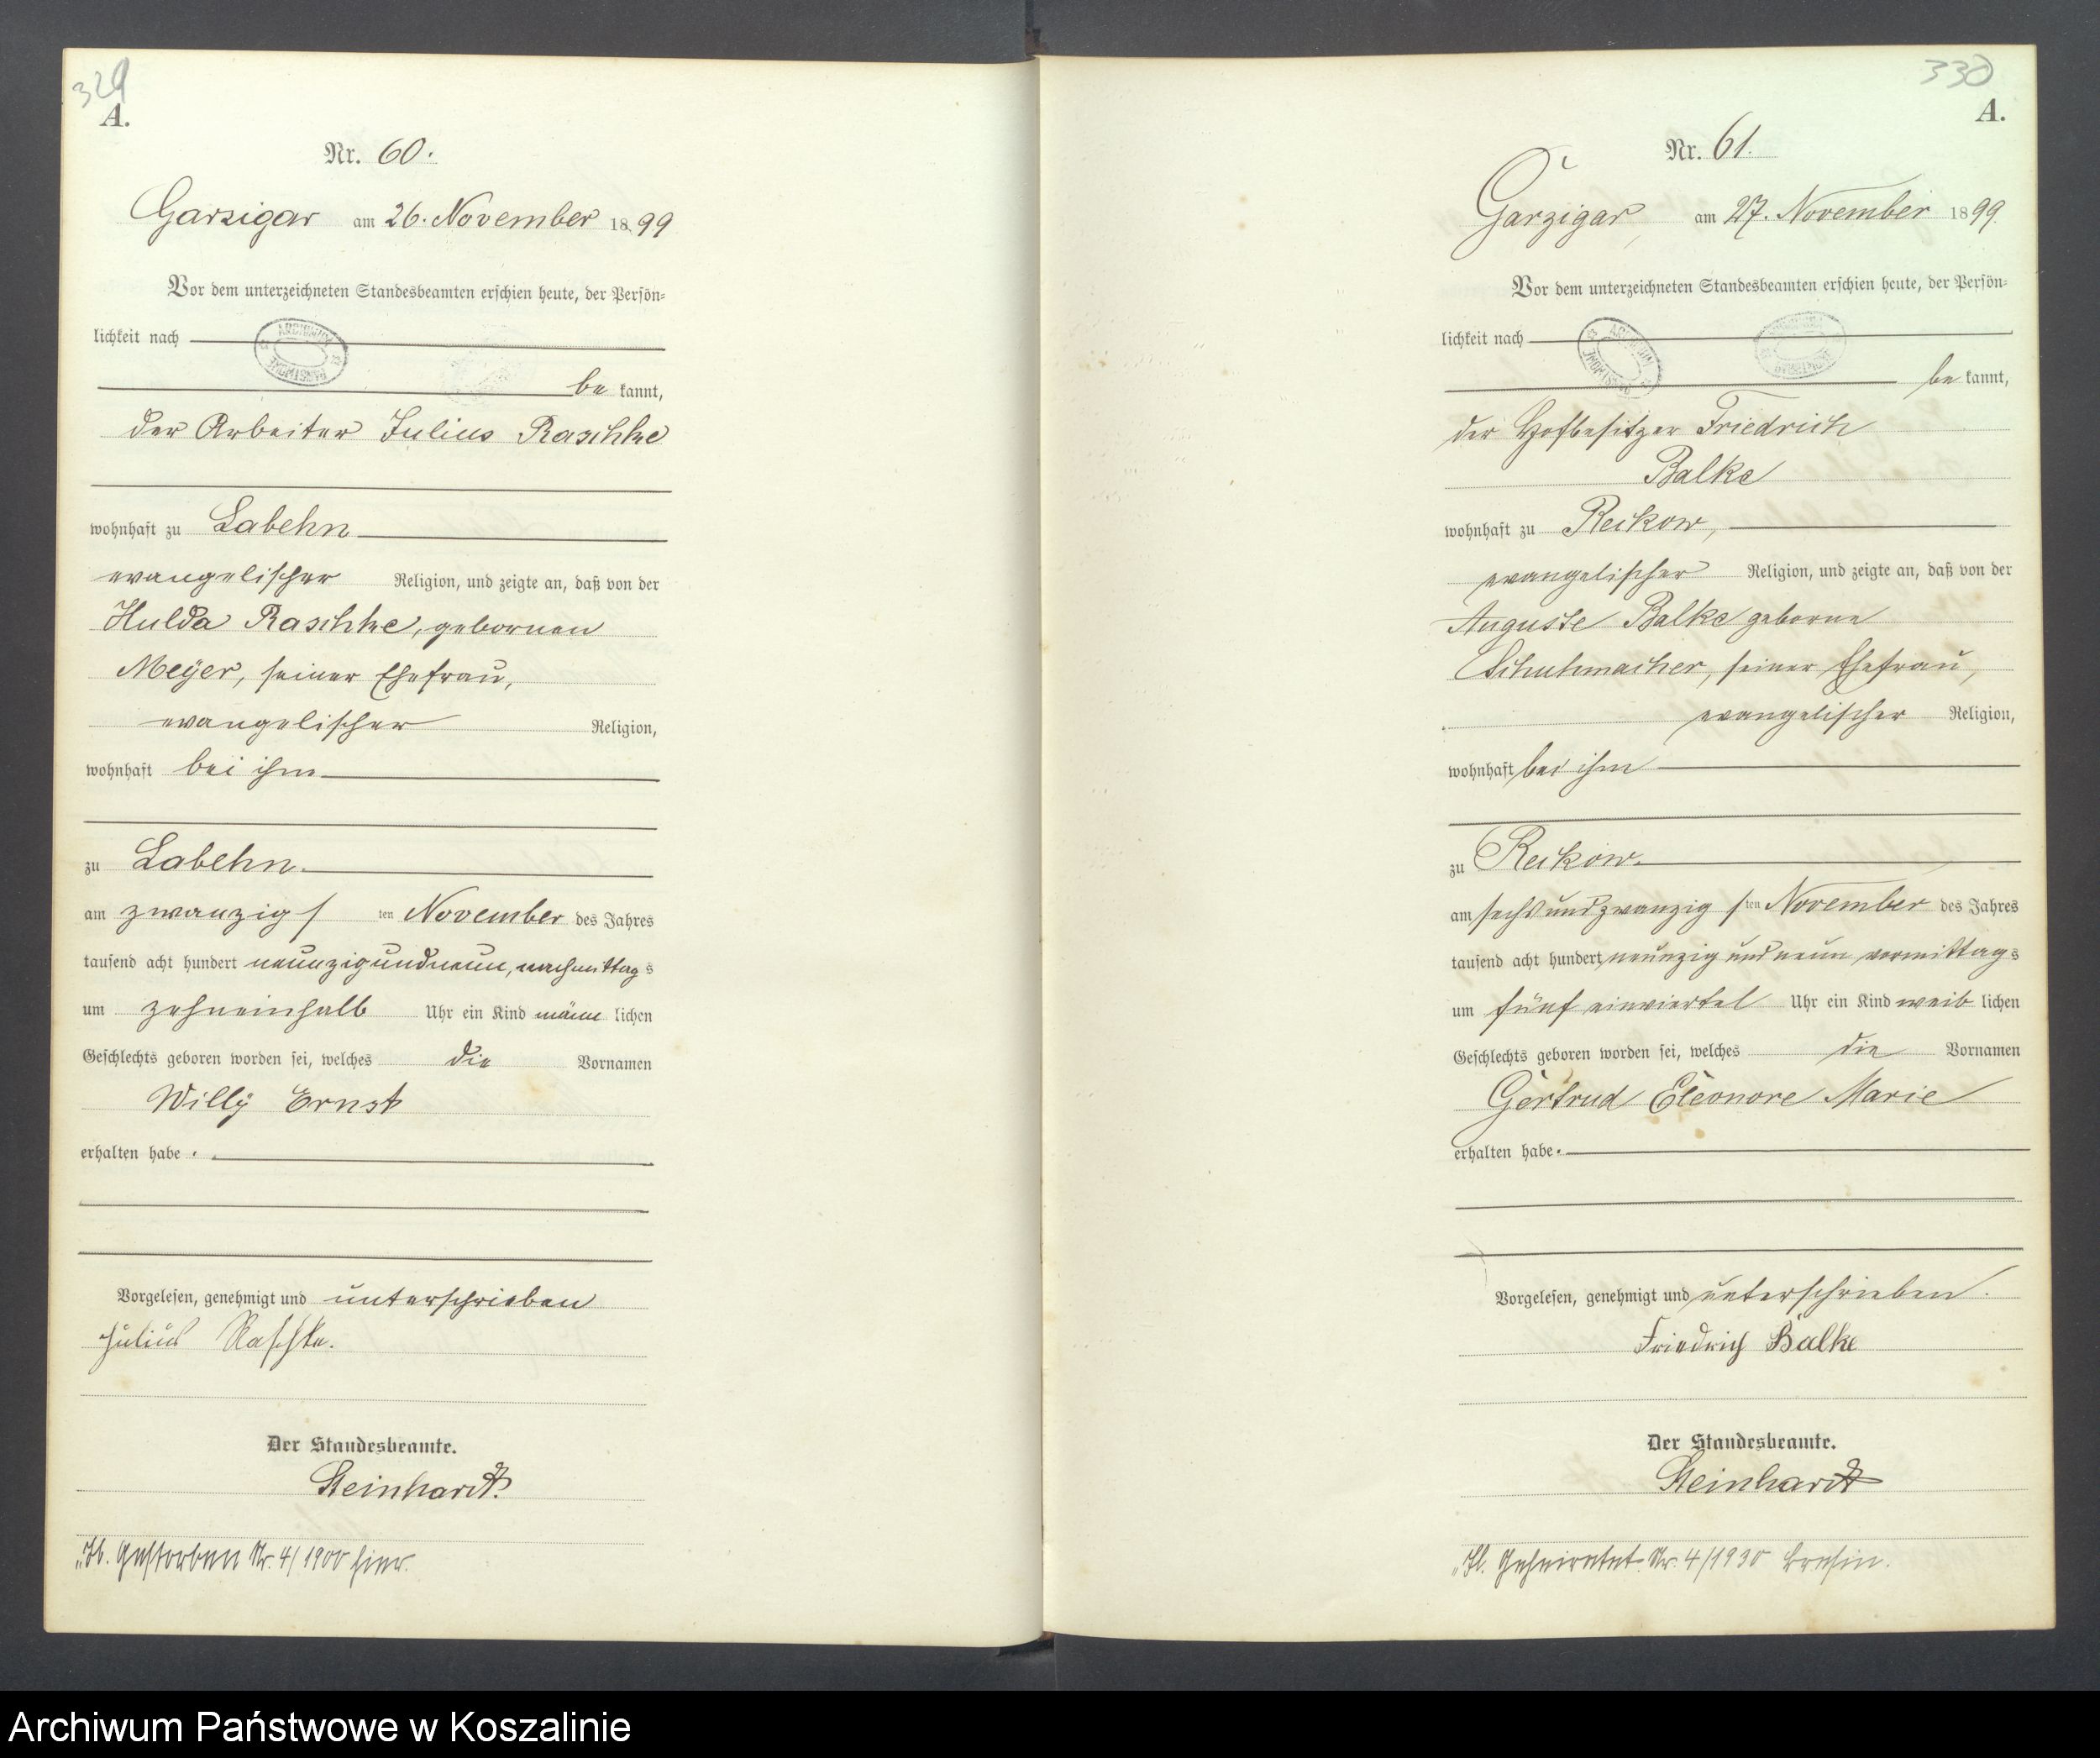 329
A.
Nr. 60.
Garzigar am 26. November 1899
Vor dem unterzeichneten Standesbeamten erschien heute, der Persön-
lichkeit nach
be kannt,
der Arbeiter Julius Raschke
wohnhaft zu Labehn
evangelischer Religion, und zeigte an, daß von der
Hulda Raschke, geborenen
Meÿer, seiner Ehefrau,
evangelischer Religion,
wohnhaft bei ihm
zu Labehn.
am zwanzigs ten November des Jahres
tausend acht hundert neunzigundneun, nachmittag s
um zehneinhalb Uhr ein Kind männ lichen
Geschlechts geboren worden sei, welches die Vornamen
Willÿ Ernst
erhalten habe.
Vorgelesen, genehmigt und unterschrieben
Julius Raschke.
Der Standesbeamte.
Steinhardt.
Gestorben Nr. 4/1900 hier.
330
A.
Nr. 61.
Garzigar am 27. November 1899.
Vor dem unterzeichneten Standesbeamten erschien heute, der Persön-
lichkeit nach
be kannt,
der Hofbesitzer Friedrich
Balke
wohnhaft zu Reckow,
evangelischer Religion, und zeigte an, daß von der
Auguste Balke geborne
Schuhmacher, seiner Ehefrau,
evangelischer Religion,
wohnhaft bei ihm
zu Reckow.
am sechsundzwanzig s ten November des Jahres
tausend acht hundert neunzig und neun vormittag s
um fünf einviertel Uhr ein Kind weib lichen
Geschlechts geboren worden sei, welches die Vornamen
Gertrud Eleonore Marie
erhalten habe.
Vorgelesen, genehmigt und unterschrieben.
Friedrich Balke
Der Standesbeamte.
Steinhardt
Geheiratet Nr. 4/1930 Bresin.
Archiwum Państwowe w Koszalinie